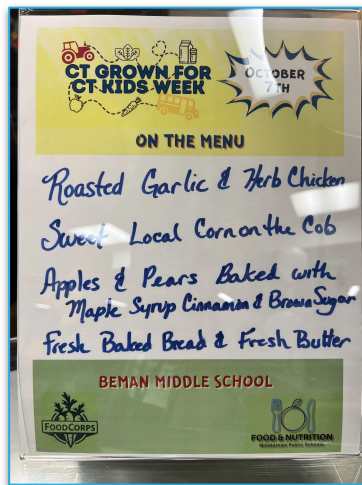 CT GROWN FOR
CT KIDS WEEK
OCTOBER
7TH
ON THE MENU
Roasted Garlic & Herb Chicken
Sweet Local Corn on the Cob
Apples & Pears Baked with
Maple Syrup Cinnamon & Brown Sugar
Fresh Baked Bread & Fresh Butter
BEMAN MIDDLE SCHOOL
FOODCORPS
FOOD & NUTRITION
Middletown Public Schools